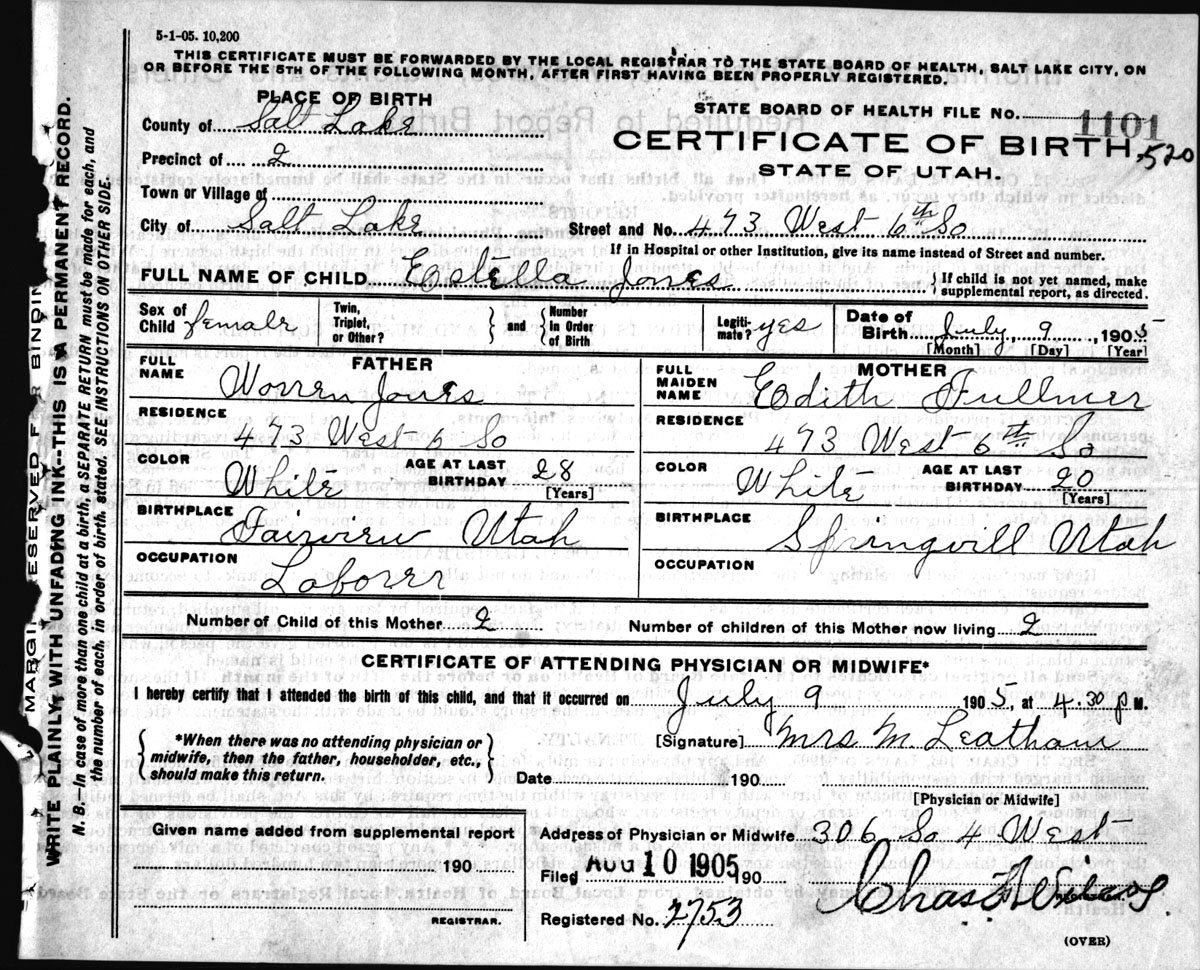 5-1-05. 10,200
THIS CERTIFICATE MUST BE FORWARDED BY THE LOCAL REGISTRAR TO THE STATE BOARD OF HEALTH, SALT LAKE CITY, ON
OR BEFORE THE 5TH OF THE FOLLOWING MONTH, AFTER FIRST HAVING BEEN PROPERLY REGISTERED.
PLACE OF BIRTH
STATE BOARD OF HEALTH FILE NO. 1101
County of Salt Lake
CERTIFICATE OF BIRTH 520
Precinct of 2
STATE OF UTAH.
Town or Village of
City of Salt Lake Street and No. 473 West 6th So
If in Hospital or other Institution, give its name instead of Street and number.
FULL NAME OF CHILD Estella Jones { If child is not yet named, make
supplemental report, as directed.
Sex of Child female Twin, Triplet, or Other? } and { Number In Order of Birth Legitimate? yes Date of Birth July 9, 1905
[Month] [Day] [Year]
FATHER MOTHER
FULL NAME Worren Jones FULL MAIDEN NAME Edith Fullmer
RESIDENCE 473 West 6 So RESIDENCE 473 West 6th So
COLOR White AGE AT LAST BIRTHDAY 28 [Years] COLOR White AGE AT LAST BIRTHDAY 20 [Years]
BIRTHPLACE Fairview Utah BIRTHPLACE Springvill Utah
OCCUPATION Laborer OCCUPATION
Number of Child of this Mother 2 Number of children of this Mother now living 2
CERTIFICATE OF ATTENDING PHYSICIAN OR MIDWIFE*
I hereby certify that I attended the birth of this child, and that it occurred on July 9 1905, at 4.30 P M.
{ *When there was no attending physician or
midwife, then the father, householder, etc.,
should make this return. }
[Signature] Mrs M Leatham
Date 190
[Physician or Midwife]
Given name added from supplemental report
190
REGISTRAR.
Address of Physician or Midwife 306 So 4 West
Filed AUG 10 1905 190
Registered No. 2753
Chas
(OVER)
MARGIN RESERVED FOR BINDIN
WRITE PLAINLY WITH UNFADING INK--THIS IS A PERMANENT RECORD.
N. B.—In case of more than one child at a birth, a SEPARATE RETURN must be made for each, and
the number of each, in order of birth, stated. SEE INSTRUCTIONS ON OTHER SIDE.